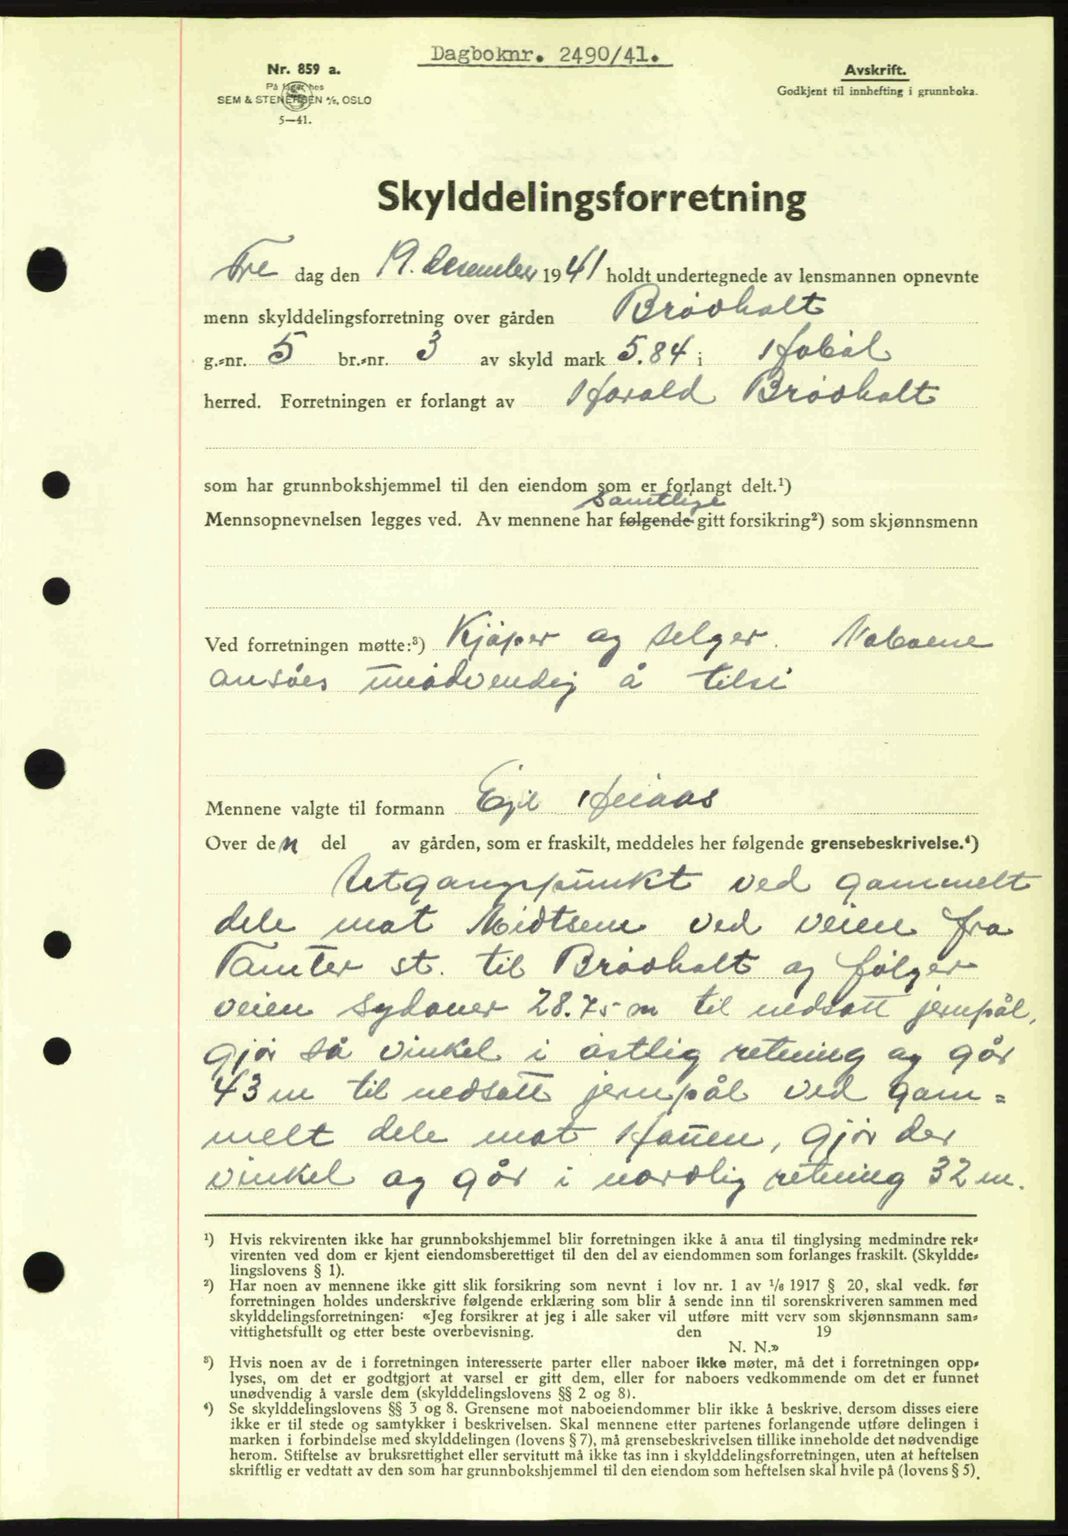 Dagboknr. 2490/41.
Nr. 859 a.
På lager hos
SEM & STENERSEN A/S, OSLO
5—41.
Avskrift.
Godkjent til innhefting i grunnboka.
Skylddelingsforretning
Fre dag den 19. desember 1941 holdt undertegnede av lensmannen opnevnte
menn skylddelingsforretning over gården Brødholt
g.-nr. 5 br.-nr. 3 av skyld mark 5.84 i Hobøl
herred. Forretningen er forlangt av Harald Brødholt
som har grunnbokshjemmel til den eiendom som er forlangt delt.¹)
samtlige
Mennsopnevnelsen legges ved. Av mennene har følgende gitt forsikring²) som skjønnsmenn
Ved forretningen møtte:³) Kjøper og selger. Naboene
ansåes unødvendig å tilsi
Mennene valgte til formann Egil Heiaas
Over den del av gården, som er fraskilt, meddeles her følgende grensebeskrivelse.⁴)
Utgangspunkt ved gammelt
dele mot Midtsem ved veien fra
Tomter st. til Brødholt og følger
veien sydover 28.75 m til nedsatt jernpål,
gjør så vinkel i østlig retning og går
43 m til nedsatt jernpål ved gam=
melt dele mot Hauen, gjør der
vinkel og går i nordlig retning 32 m.
¹) Hvis rekvirenten ikke har grunnbokshjemmel blir forretningen ikke å anta til tinglysing medmindre rek-
virenten ved dom er kjent eiendomsberettiget til den del av eiendommen som forlanges fraskilt. (Skyldde-
lingslovens § 1).
²) Har noen av mennene ikke gitt slik forsikring som nevnt i lov nr. 1 av 1/6 1917 § 20, skal vedk. før
forretningen holdes underskrive følgende erklæring som blir å sende inn til sorenskriveren sammen med
skylddelingsforretningen: «Jeg forsikrer at jeg i alle saker vil utføre mitt verv som skjønnsmann sam-
vittighetsfullt og etter beste overbevisning. den 19
N. N.»
³) Hvis noen av de i forretningen interesserte parter eller naboer ikke møter, må det i forretningen opp-
lyses, om det er godtgjort at varsel er gitt dem, eller for naboers vedkommende om det er funnet
unødvendig å varsle dem (skylddelingslovens §§ 2 og 8).
⁴) Se skylddelingslovens §§ 3 og 8. Grensene mot naboeiendommer blir ikke å beskrive, dersom disses eiere
ikke er til stede og samtykker i beskrivelsen. Skal mennene etter partenes forlangende utføre delingen i
marken i forbindelse med skylddelingen (lovens § 7), må grensebeskrivelsen tillike inneholde det nødvendige
herom. Stiftelse av bruksrettighet eller servitutt må ikke tas inn i skylddelingsforretningen, uten at heftelsen
skriftlig er vedtatt av den som har grunnbokshjemmel til den eiendom som heftelsen skal hvile på (lovens § 5).